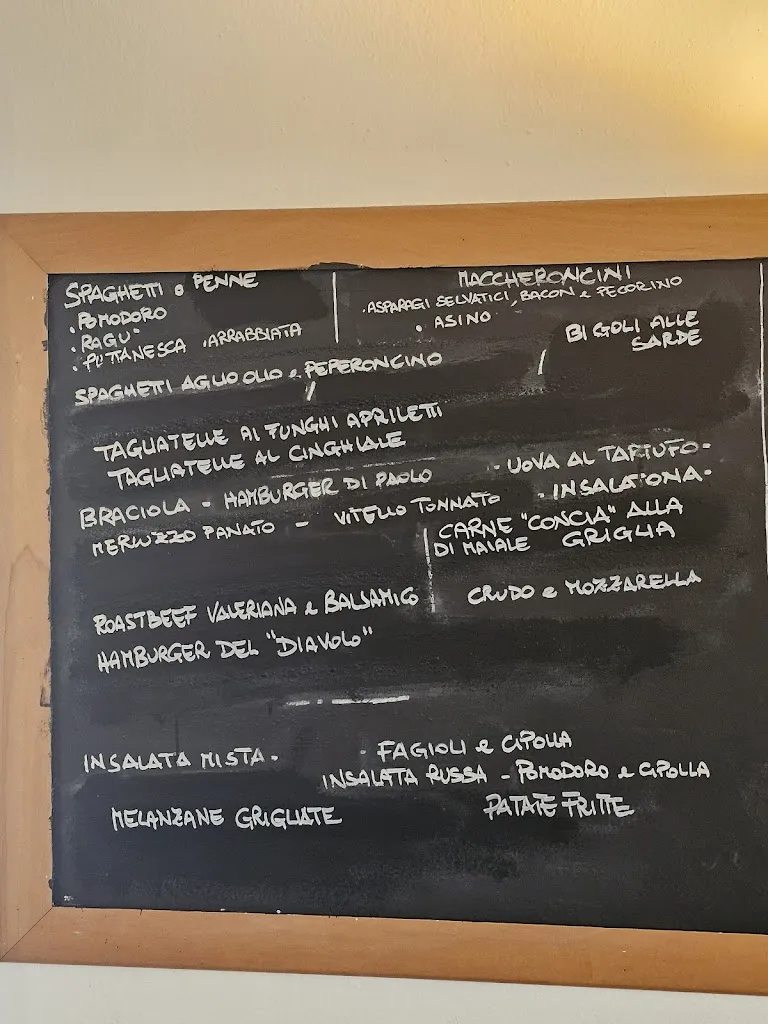 SPAGHETTI o PENNE
. POMODORO
. RAGU'
. PUTTANESCA . ARRABBIATA
MACCHERONCINI
. ASPARAGI SELVATICI, BACON e PECORINO
. ASINO
BIGOLI ALLE
SARDE
SPAGHETTI AGLIO OLIO e PEPERONCINO
TAGLIATELLE AI FUNGHI APRILETTI
TAGLIATELLE AL CINGHIALE
BRACIOLA - HAMBURGER DI PAOLO - UOVA AL TARTUFO -
MERLUZZO PANATO - VITELLO TONNATO - INSALATONA -
CARNE "CONCIA" ALLA
DI MAIALE GRIGLIA
ROASTBEEF VALERIANA e BALSAMICO
CRUDO e MOZZARELLA
HAMBURGER DEL "DIAVOLO"
INSALATA MISTA - - FAGIOLI e CIPOLLA
INSALATA RUSSA - POMODORO e CIPOLLA
MELANZANE GRIGLIATE PATATE FRITTE